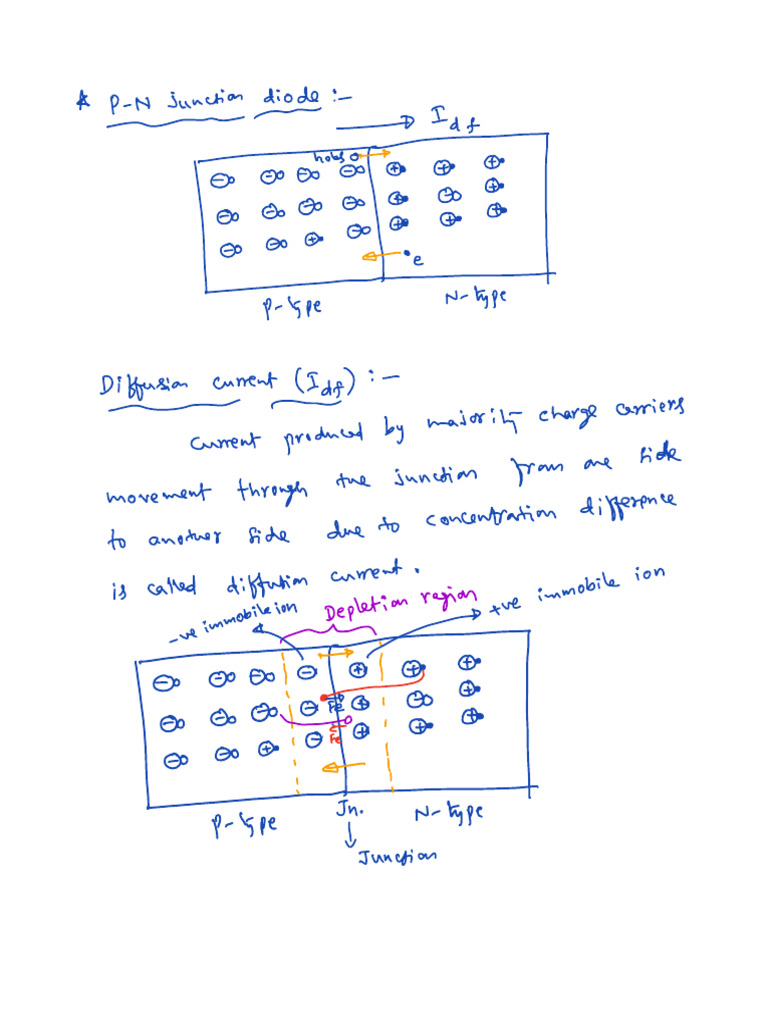 * P-N junction diode :-
I df
holes
e
P-type
N-type
Diffusion current (I df) :-
Current produced by majority charge carriers
movement through the junction from one side
to another side due to concentration difference
is called diffusion current.
-ve immobile ion
Depletion region
+ve immobile ion
Fe
Fe
P-type
Jn.
N-type
Junction